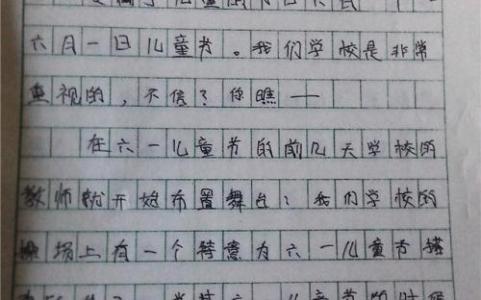 儿童
六月一日儿童节。我们学校是非常
重视的，不信？你瞧——
在六一儿童节的前几天学校的
教师就开始布置舞台：我们学校的
操场上有一个特意为六一儿童节搭
六一儿童节的时候